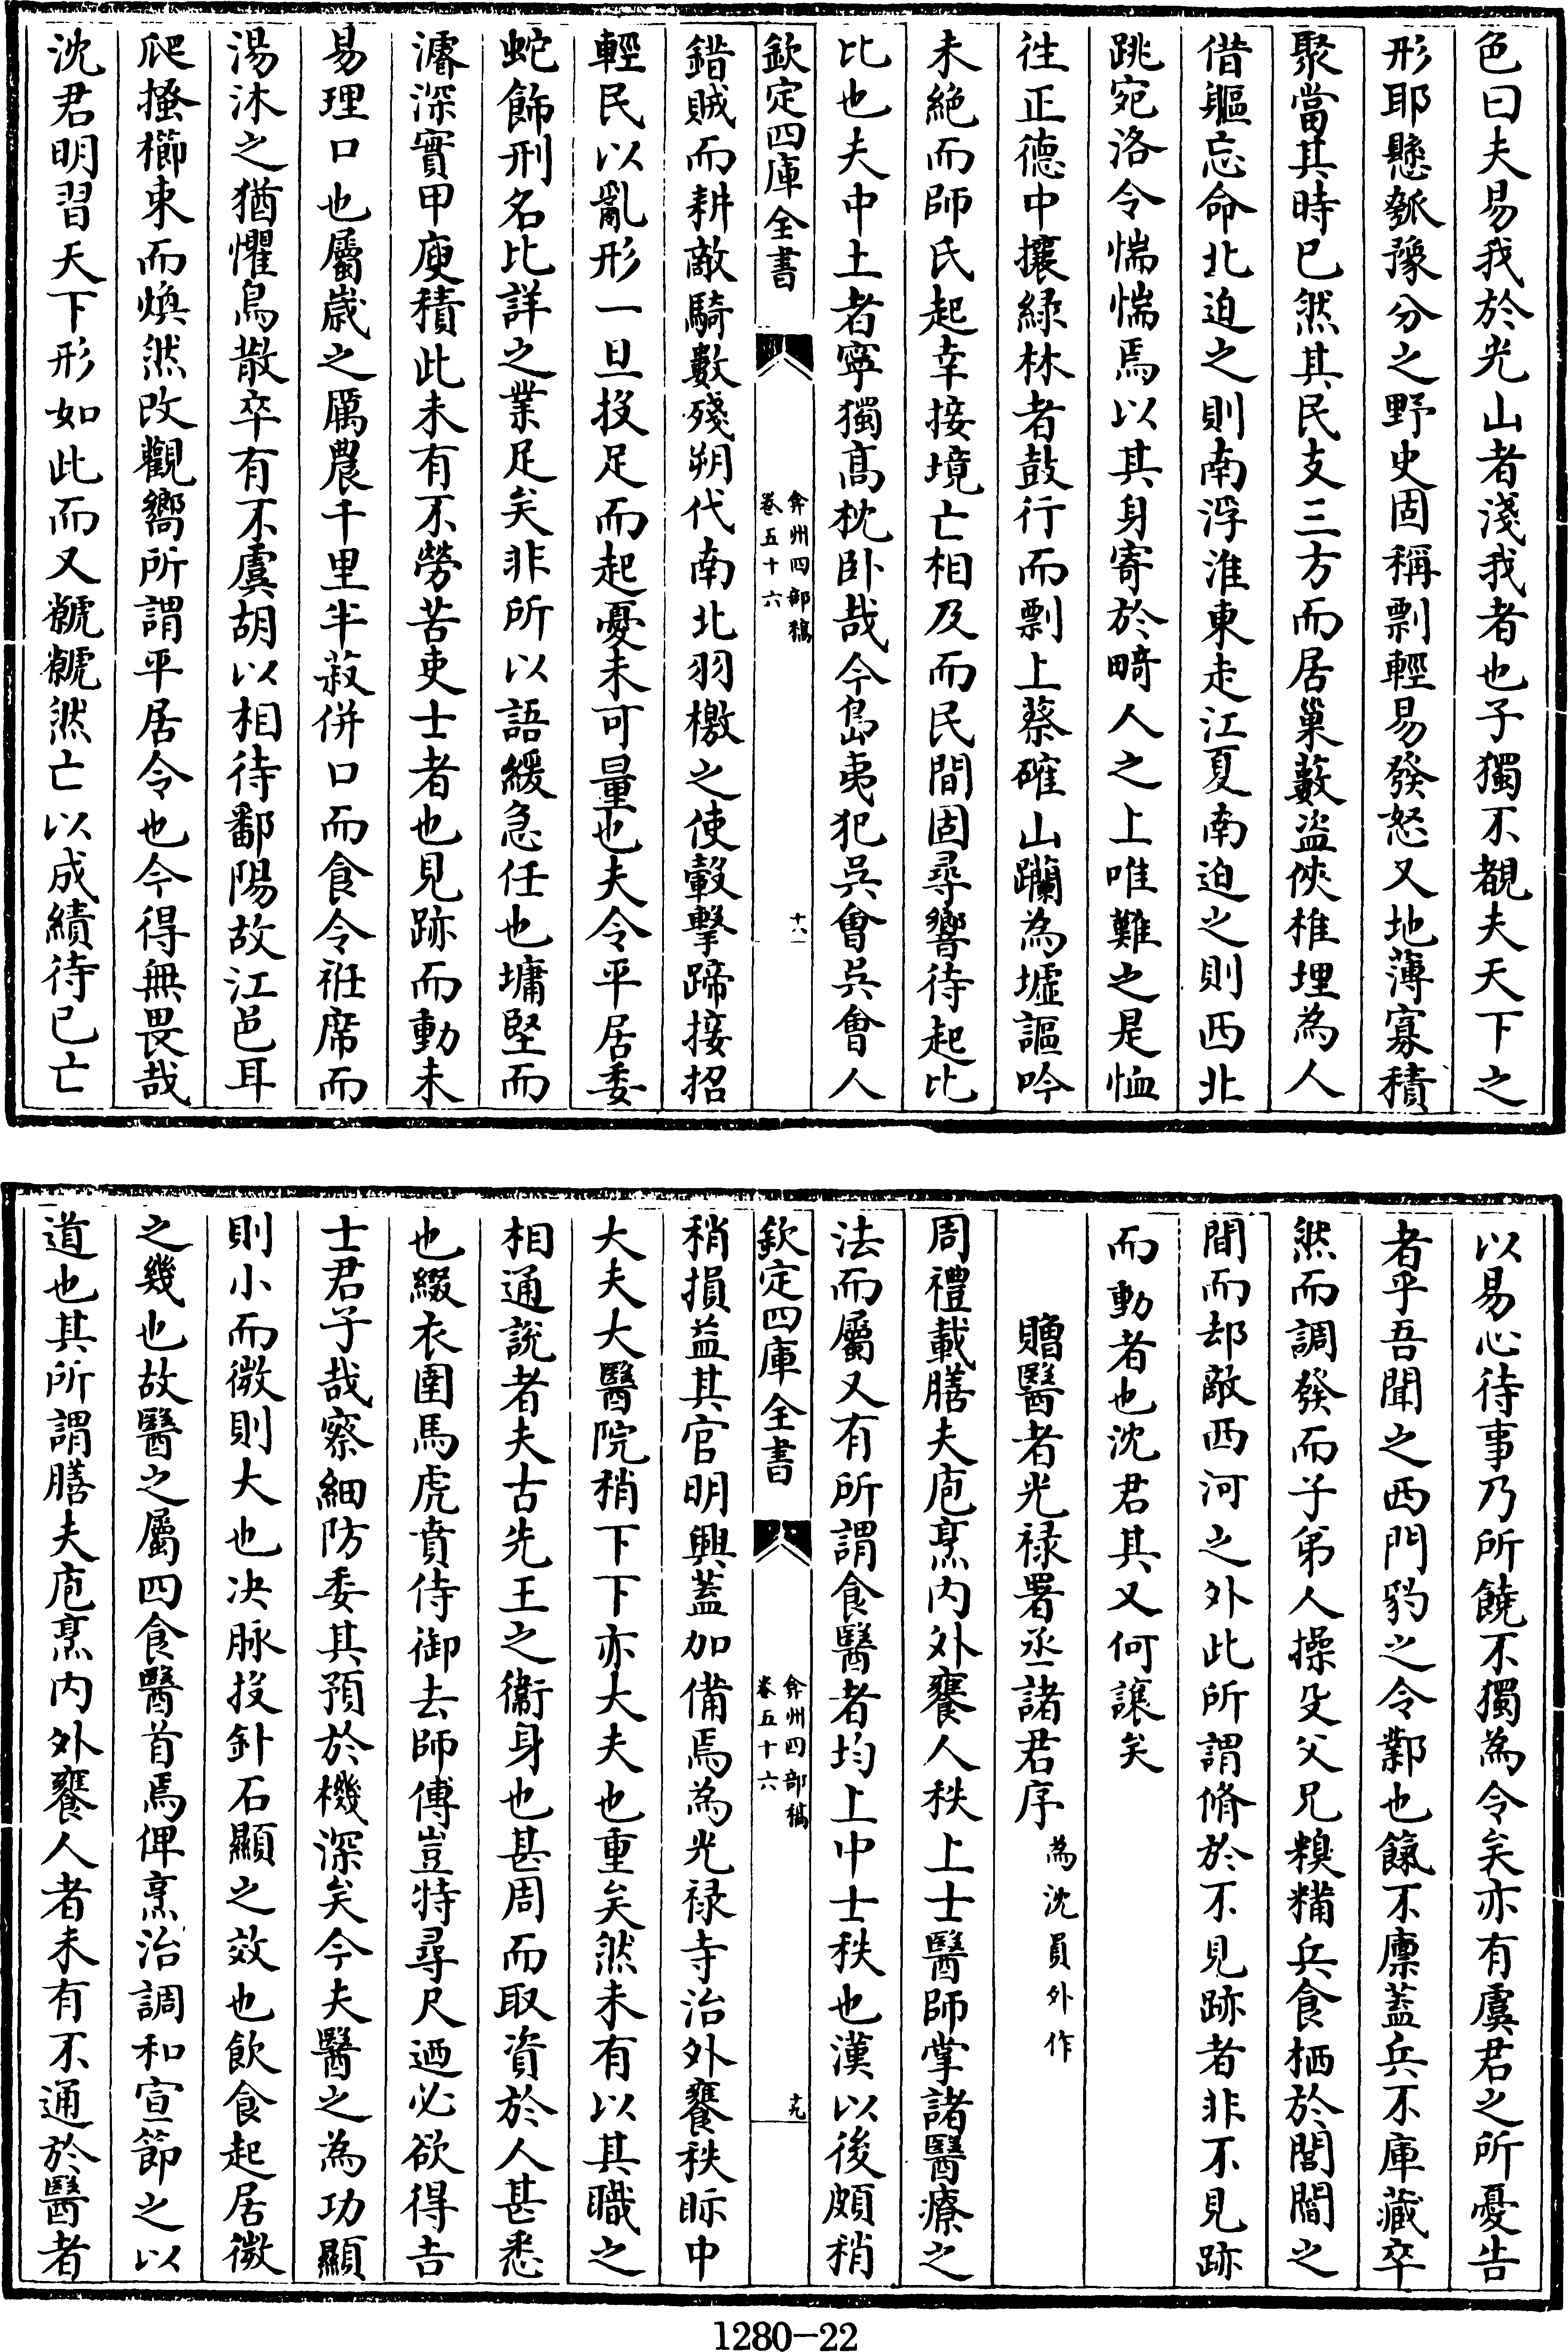 色曰夫易我於光山者淺我者也子獨不覩夫天下之
形耶懸瓠豫分之野史固稱剽輕易發怒又地薄寡積
聚當其時已然其民支三方而居巢藪盜俠椎埋為人
借軀忘命北迫之則南浮淮東走江夏南迫之則西北
跳宛洛令惴惴焉以其身寄於畸人之上唯難之是恤
往正德中攘緑林者鼓行而剽上蔡確山躪為墟謳吟
未絶而師氏起幸接境亡相及而民間固尋響待起比
比也夫中土者寧獨髙枕卧哉今島夷犯吳會吳會人
欽定四庫全書
弇州四部稿
卷五十六
十八
錯賊而耕敵騎數殘朔代南北羽檄之使轂擊蹄接招
輕民以亂形一旦投足而起憂未可量也夫令平居委
蛇飾刑名比詳之業足矣非所以語緩急任也墉堅而
濬深實甲庾積此未有不勞苦吏士者也見跡而動未
易理口也屬歲之厲農千里半菽併口而食令袵席而
湯沐之猶懼鳥散卒有不虞胡以相待鄱陽故江邑耳
爬搔櫛束而煥然改觀嚮所謂平居令也今得無畏哉
沈君明習天下形如此而又虩虩然亡以成績待已亡
以易心待事乃所饒不獨為令矣亦有虞君之所憂告
者乎吾聞之西門豹之令鄴也餼不廩蓋兵不庫藏卒
然而調發而子弟人操殳父兄糗糒兵食栖於閭閻之
間而却敵西河之外此所謂脩於不見跡者非不見跡
而動者也沈君其又何讓矣
贈醫者光禄署丞諸君序為沈員外作
周禮載膳夫庖烹内外饔人秩上士醫師掌諸醫療之
法而屬又有所謂食醫者均上中士秩也漢以後頗稍
欽定四庫全書
弇州四部稿
卷五十六
十九
稍損益其官明興蓋加備焉為光禄寺治外饔秩眎中
大夫大醫院稍下下亦大夫也重矣然未有以其職之
相通說者夫古先王之衞身也甚周而取資於人甚悉
也綴衣圉馬虎賁侍御去師傅豈特尋尺迺必欲得吉
士君子哉察細防委其預於機深矣今夫醫之為功顯
則小而微則大也决脉投針石顯之效也飲食起居微
之幾也故醫之屬四食醫首焉俾烹治調和宣節之以
道也其所謂膳夫庖烹内外饔人者未有不通於醫者
1280-22